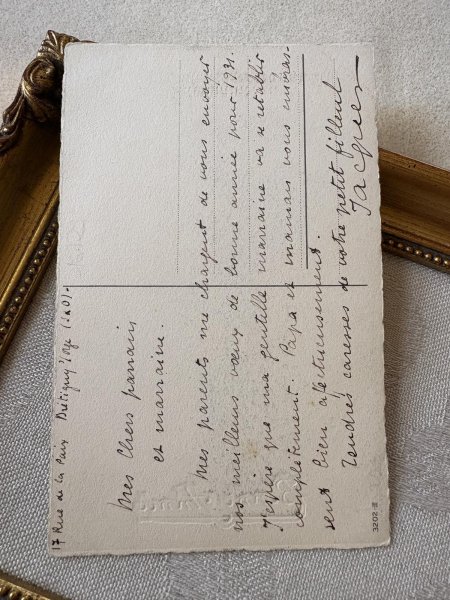 17 Rue de la Paix Brétigny s/Orge (S.&O).
Mes Chers parrain
et marraine.
Mes parents me chargent de vous envoyer
nos meilleurs vœux de bonne année pour 1931.
J'espère que ma gentille marraine va se rétablir
complètement. Papa et maman vous embras-
sent bien affectueusement.
Tendres caresses de votre petit filleul
Jacques
3202-II